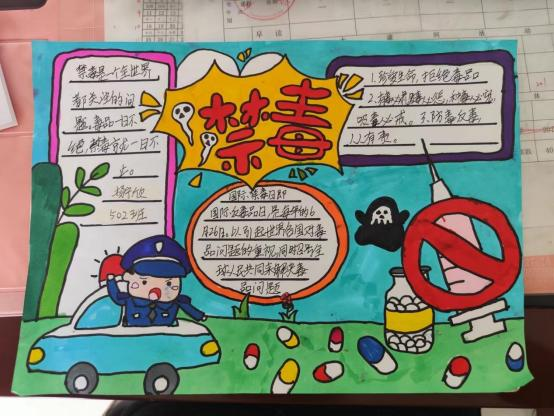 禁毒
禁毒是一个全世界
都关注的问
题,毒品一日不
绝,禁毒就一日不
止。
502班
1.珍爱生命,拒绝毒品
吸毒必戒。3.防毒反毒,
人人有责。
国际禁毒日即
国际反毒品日,是每年的6
月26日。以引起世界各国对毒
品问题的重视,同时号召全
球人民共同来解决毒
品问题